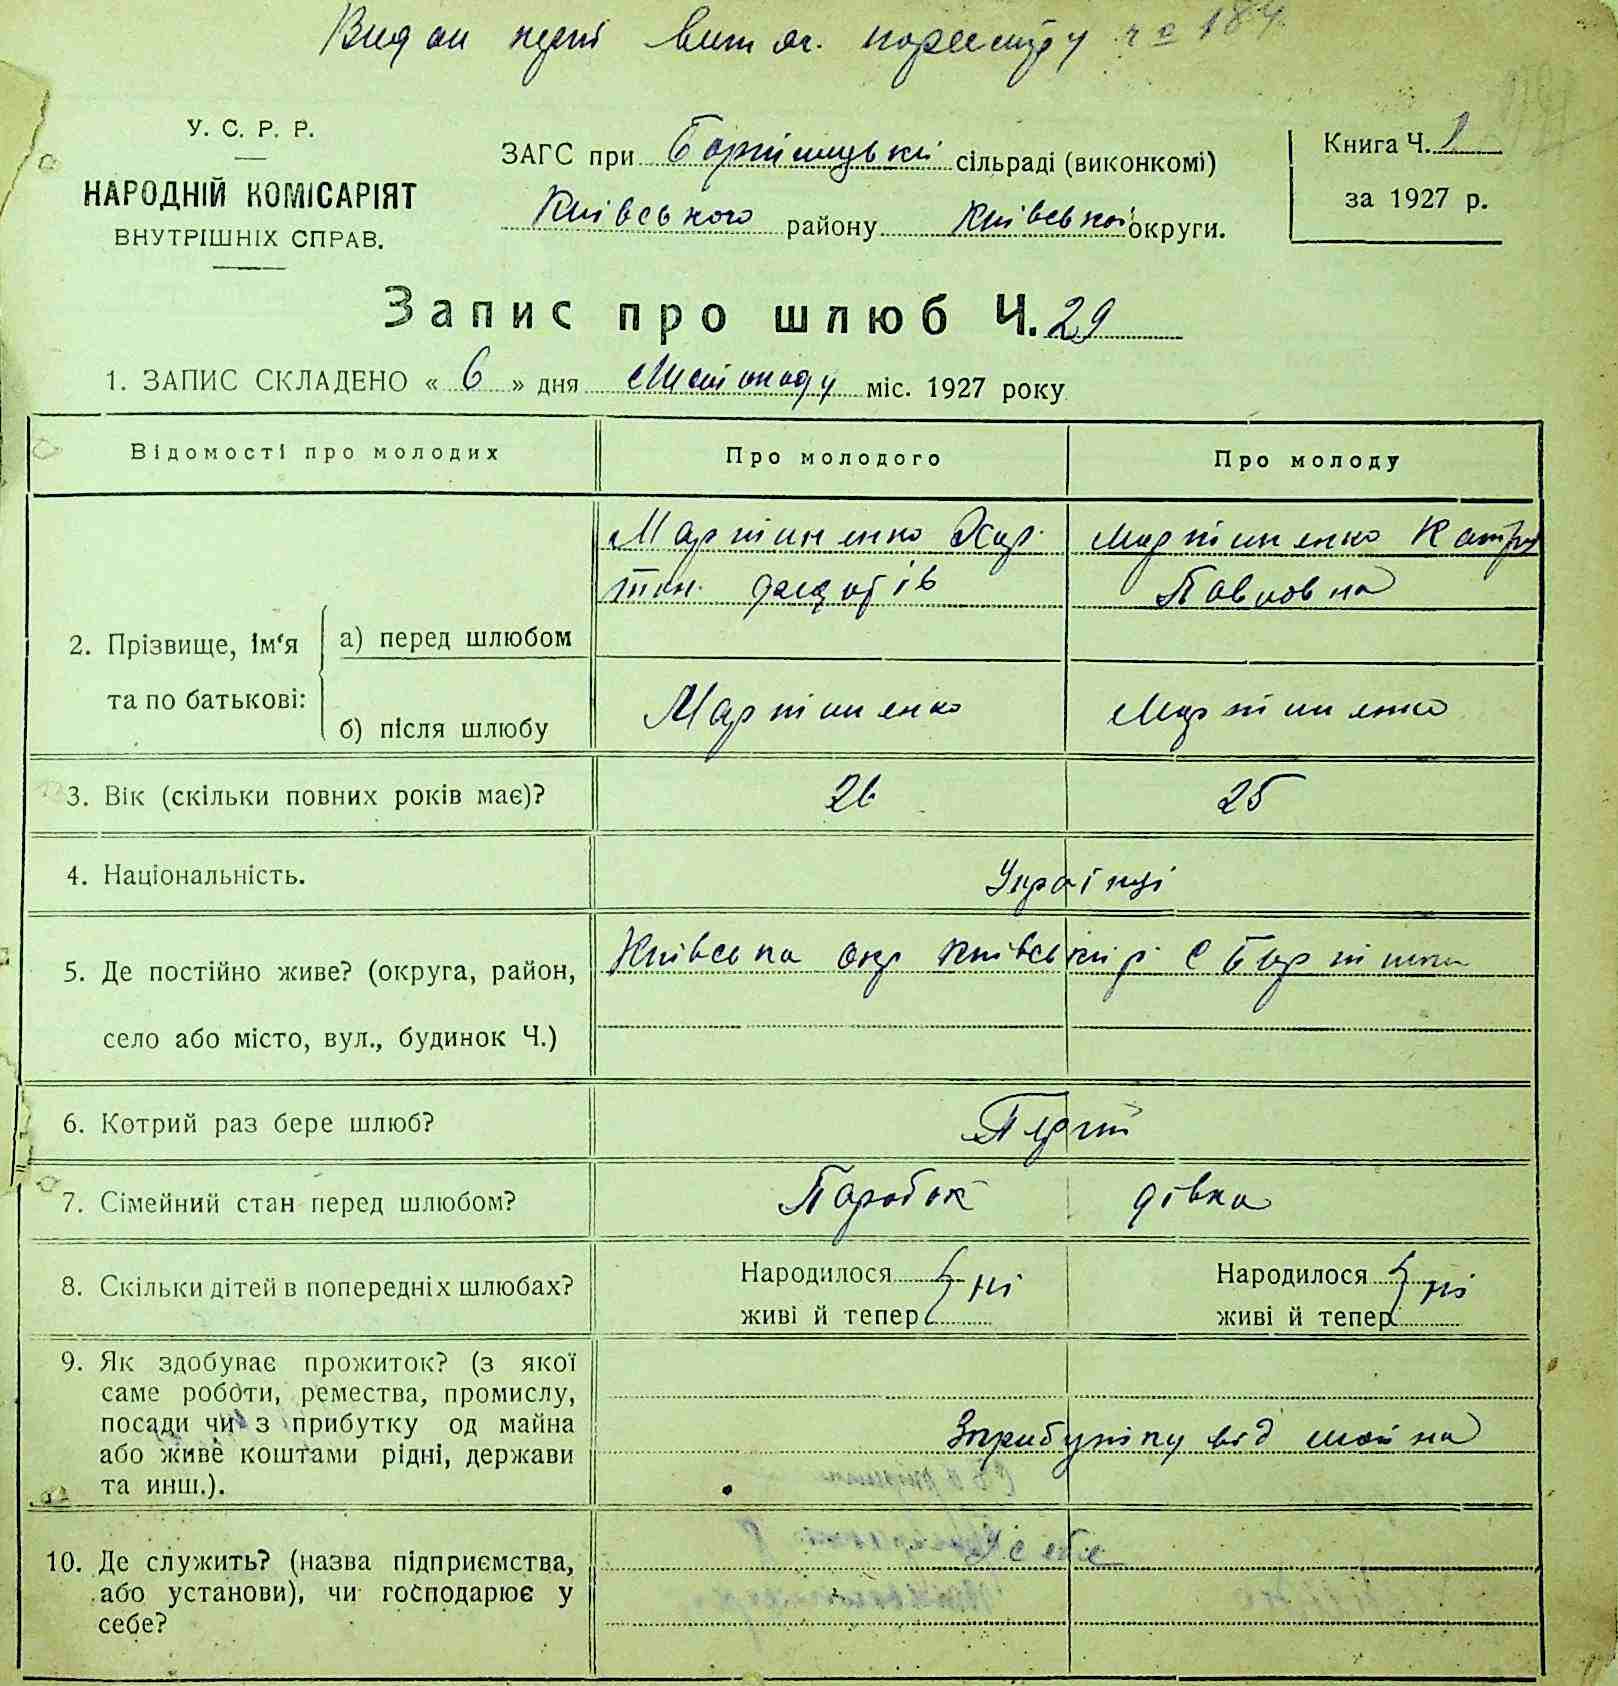 У. С. Р. Р.
НАРОДНІЙ КОМІСАРІЯТ
ВНУТРІШНІХ СПРАВ.
ЗАГС при Бортницькій сільраді (виконкомі)
Київського району Київської округи.
Книга Ч. 1
за 1927 р.
Запис про шлюб Ч. 29
1. ЗАПИС СКЛАДЕНО « 6 » дня Листопаду міс. 1927 року
Відомості про молодих
Про молодого
Про молоду
2. Прізвище, ім'я та по батькові:
а) перед шлюбом
Мартиненко Хар
тин
Мартиненко Катря
Павловна
б) після шлюбу
Мартиненко
Мартиненко
3. Вік (скільки повних років має)?
26
25
4. Національність.
Українці
5. Де постійно живе? (округа, район,
село або місто, вул., будинок Ч.)
Київська окр Київськ р с Бортничи
6. Котрий раз бере шлюб?
7. Сімейний стан перед шлюбом?
Паробок
дівка
8. Скільки дітей в попередніх шлюбах?
Народилося
живі й тепер
ні
Народилося
живі й тепер
ні
9. Як здобуває прожиток? (з якої
саме роботи, ремества, промислу,
посади чи з прибутку од майна
або живе коштами рідні, держави
та инш.).
З прибутку від майна
10. Де служить? (назва підприємства,
або установи), чи господарює у
себе?
У себе